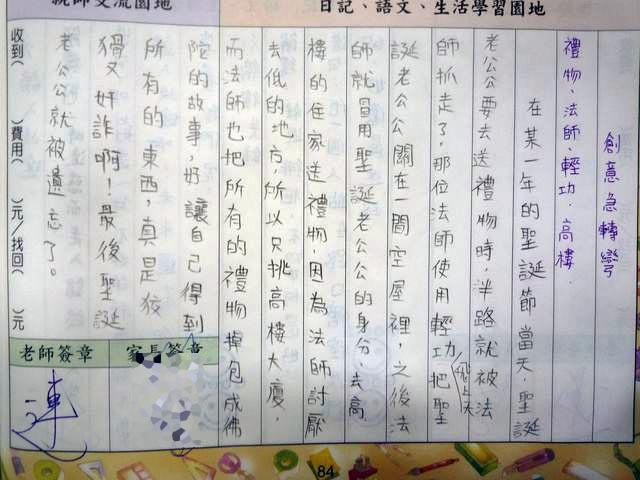 日記、語文、生活學習園地
親師交流園地
創意急轉彎
禮物、法師、輕功、高樓．
在某一年的聖誕節當天，聖誕
老公公要去送禮物時，半路就被法
師抓走了，那位法師使用輕功把聖
飛上天
誕老公公關在一間空屋裡，之後法
師就冒用聖誕老公公的身分，去高
樓的住家送禮物，因為法師討厭
去低的地方，所以只挑高樓大廈，
而法師也把所有的禮物掉包成佛
陀的故事，好讓自己得到
所有的東西，真是狡
猾又奸詐啊！最後聖誕
老公公就被遺忘了。
收到（　）費用（　）元／找回（　）元
家長簽章
老師簽章
連
84